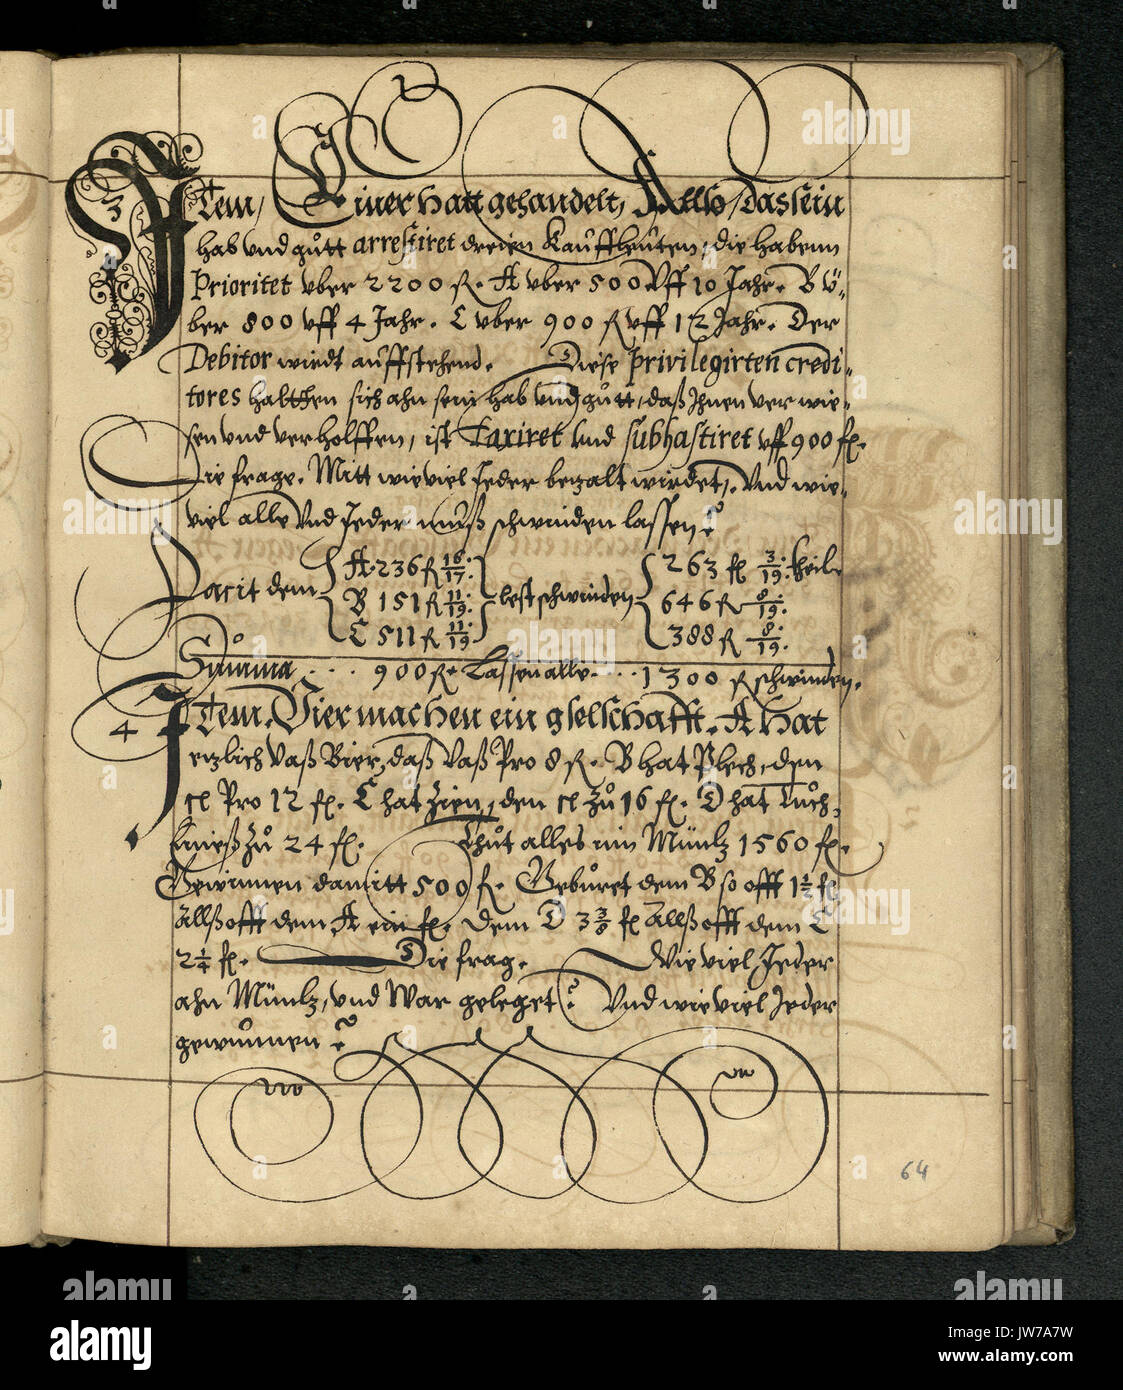 3 Item, Einer hatt gehandelt, Allso, das sein
hab vnd gůtt arrestiret dreien Kauffleuten, die habenn
Prioritet vber 2200 fl. A vber 500 vff 10 Jahr. B ü-
ber 800 vff 4 Jahr. C vber 900 fl vff 12 Jahr. Der
Debitor wirdt auffstehend. Diese privilegirten credi-
tores haltthen sich ahn sein hab vnd gůtt, daß Ihnen ver wie-
sen vnd verholffen, ist Taxiret vnd subhastiret vff 900 fl.
Die frage. Mitt wieviel Jeder bezalt wirdet, Vnd wie-
viel alle Vnd Jeder muß schwinden lassen?
Facit dem
A. 236 fl 16/17.
B 151 fl 11/19.
C 511 fl 11/19.
lest schwinden
263 fl 3/19. theil
646 fl 8/19.
388 fl 8/19.
Summa .... 900 fl. Lassen alle .... 1300 fl schwinden.
4 Item. Vier machen ein gselschafft. A hat
etzlich Vaß Bier, daß Vaß Pro 8 fl. B hat Plech, den
cl Pro 12 fl. C hat Zien, den cl zů 16 fl. D hat Tůch,
zů 24 fl. Thůt alles inn Müntz 1560 fl.
Gewinnen damitt 500 fl. Gebüret dem B so offt 1 1/2 fl
Allß offt dem A ein fl. Dem D 3 3/8 fl Allß offt dem C
2 1/4 fl. Die frag. Wie viel Jeder
ahn Müntz, vnd War geleget? Vnd wie viel Jeder
gewunnen?
64
alamy
Image ID: JW7A7W
www.alamy.com